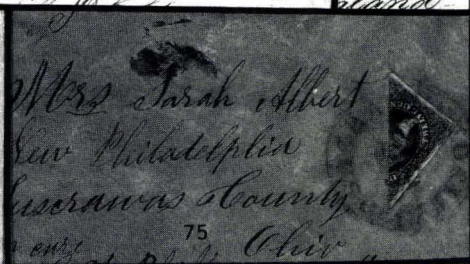 Mrs Sarah Albert
New Philadelphia
Tuscrawas County
75
Ohio